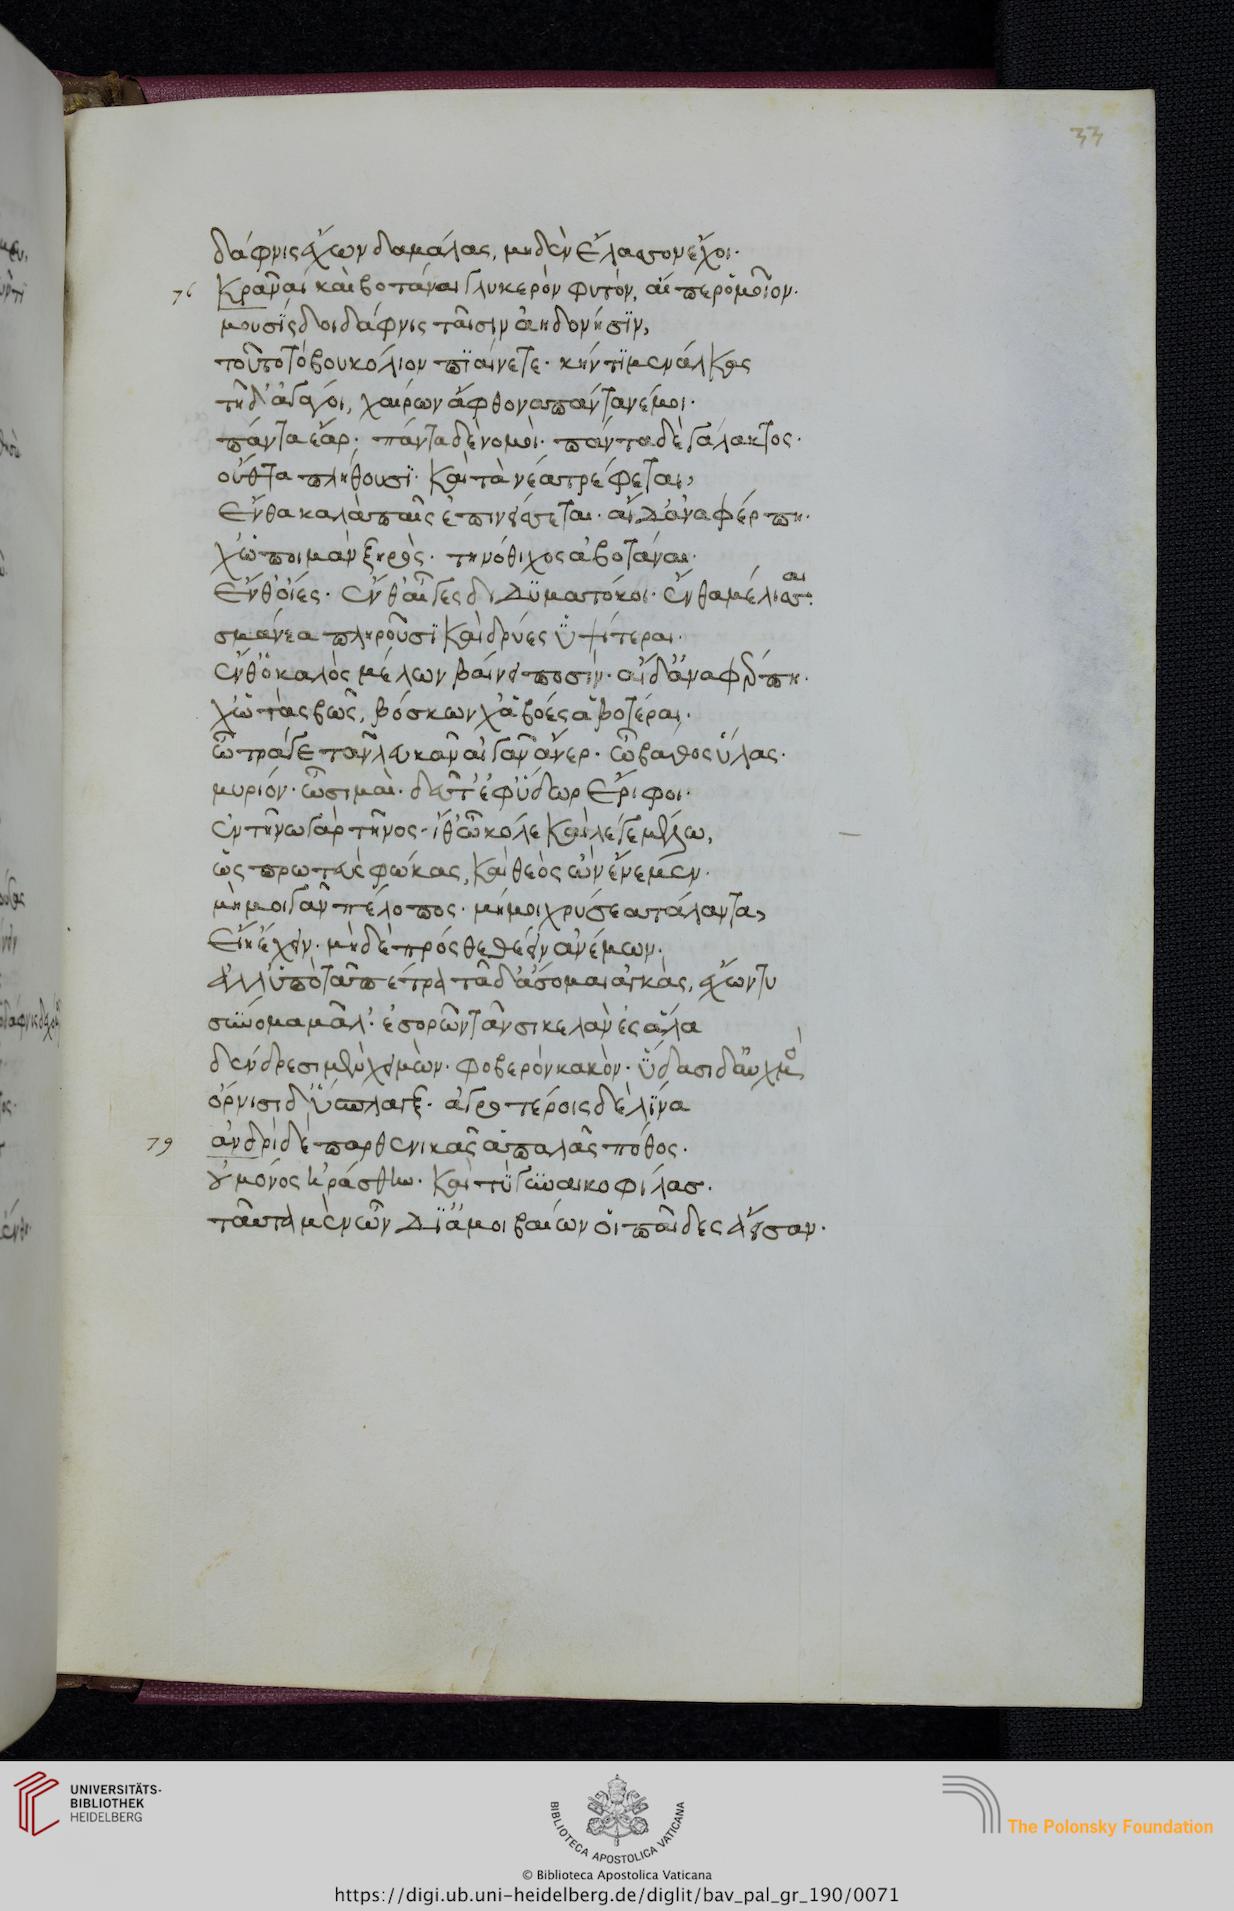 33
δάφνις ἔχων δαμάλας, μηδὲν ἔλασσον ἔχοι·
76 Κρᾶναι καὶ βοτάναι γλυκερὸν φυτόν, αἴπερ ὁμοῖον·
μουσίσδοι δάφνις ταῖσιν ἀηδονήσϊν,
τοῦτο τὸ βουκόλιον πϊαίνετε· κήν τϊ μενάλκας
τῆδ' ἀγάγοι, χαίρων ἄφθονα πάντα νέμοι·
πάντα ἔαρ· πάντα δὲ νομοὶ· πάντα δὲ γάλακτος·
οὔθατα πλήθουσϊ· καὶ τὰ νέα τρέφεται,
Ἔνθα καλὰ παῖς ἐπινίσσεται· αἴ δ' ἀν ἀφέρπη·
χὠ ποιμὰν ξηρὸς· τηνόθι χ' αἱ βοτάναι·
Ἔνθ' ὄϊες· ἔνθ' αἶγες διδϋματόκοι· ἔνθα μέλισσαι
σμάνεα πληροῦσϊ καὶ δρύες ὑψίτεραι·
ἔνθ' ὁ καλὸς μέλων βαίνει ποσίν· αἴ δ' ἂν ἀφέρπη·
χὠ τὰς βῶς, βόσκων χ' αἱ βόες αὐότεραι·
ὦ τράγε τᾶν λευκᾶν αἰγᾶν ἄνερ· ὦ βάθος ὕλας·
μυρίον· ὦ σιμαὶ· δεῦτ' ἐφ' ὕδωρ ἔριφοι·
ἐν τήνω γὰρ τῆνος· ἴθ' ὦ κόλε καὶ λέγε μίλω,
ὡς πρωτεὺς φώκας, καὶ θεὸς ὢν ἔνεμεν·
μή μοι γᾶν πέλοπος· μή μοι χρύσεα τάλαντα,
Εἴη ἔχειν· μηδὲ πρόσθε θέειν ἀνέμων·
ἀλλ' ὑπὸ τᾶ πέτρα τᾶδ' ᾄσομαι ἀγκὰς, ἔχων τυ
σύννομα μᾶλ'· ἐσορῶν τὰν σικελὰν ἐς ἅλα
δένδρεσι μὲν χειμὼν· φοβερὸν κακὸν· ὕδασι δ' αὐχμὸς
ὄρνισι δ' ὕσπλαγξ· ἀγροτέροις δὲ λίνα
79 ἀνδρὶ δὲ παρθενικᾶς ἁπαλᾶς πόθος·
οὐ μόνος ἠράσθην· καὶ τὺ γυναικοφίλας·
ταῦτα μὲν ὦν δϊ' ἀμοιβαίων οἱ παῖδες ἄεισαν·
UNIVERSITÄTS-
BIBLIOTHEK
HEIDELBERG
BIBLIOTECA APOSTOLICA VATICANA
The Polonsky Foundation
© Biblioteca Apostolica Vaticana
https://digi.ub.uni-heidelberg.de/diglit/bav_pal_gr_190/0071